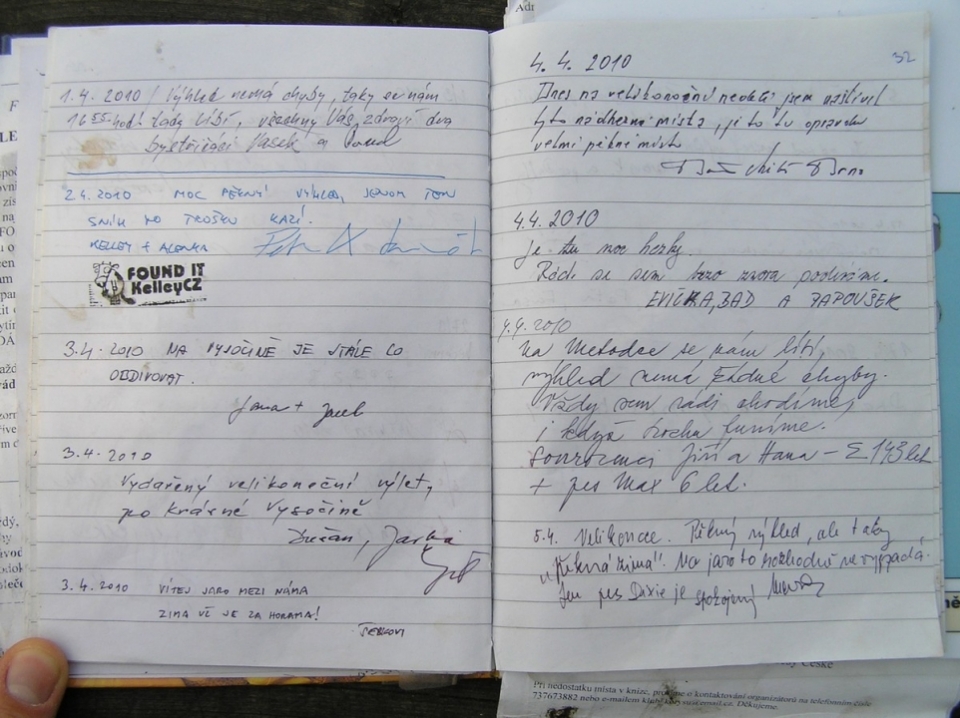 1.4. 2010 / Výhled nemá chyby, taky se nám
16 55 hod. tady líbí, všechny Vás zdraví dva
bystřičáci Vašek a
2.4. 2010 MOC PĚKNÝ VÝHLED, JENOM TEN
SNÍH HO TROŠKU KAZÍ.
KELLEY + ALENKA
FOUND IT
KelleyCZ
3.4. 2010 NA VYSOČINĚ JE STÁLE CO
OBDIVOVAT.
Jana +
3.4. 2010
Vydařený velikonoční výlet,
po krásné Vysočině
Dušan, Jarka
3.4. 2010 VÍTEJ JARO MEZI NÁMA
ZIMA UŽ JE ZA HORAMA!
4.4. 2010
32
Dnes na velikonoční neděli jsem navštívil
tyto nádherná místa, je to tu opravdu
velmi pěkné místo
Brno
4.4. 2010
je tu moc hezky.
Rádi se sem zase podíváme.
EVIČKA, BAD A PAPOUŠEK
4.4. 2010
Na Metodce se nám líbí,
výhled nemá žádné chyby.
Vždy sem rádi chodíme,
i když trochu funíme.
Sourozenci Jiří a Hana – Σ 143 let
+ pes Max 6 let.
5.4. Velikonoce. Pěkný výhled, ale taky
"pěkná zima". Na jaro to rozhodně nevypadá.
Jen pes Dixie je spokojený
Při nedostatku místa v knize, prosíme o kontaktování organizátorů na telefonním čísle
737673882 nebo e-mailem email.cz. Děkujeme.